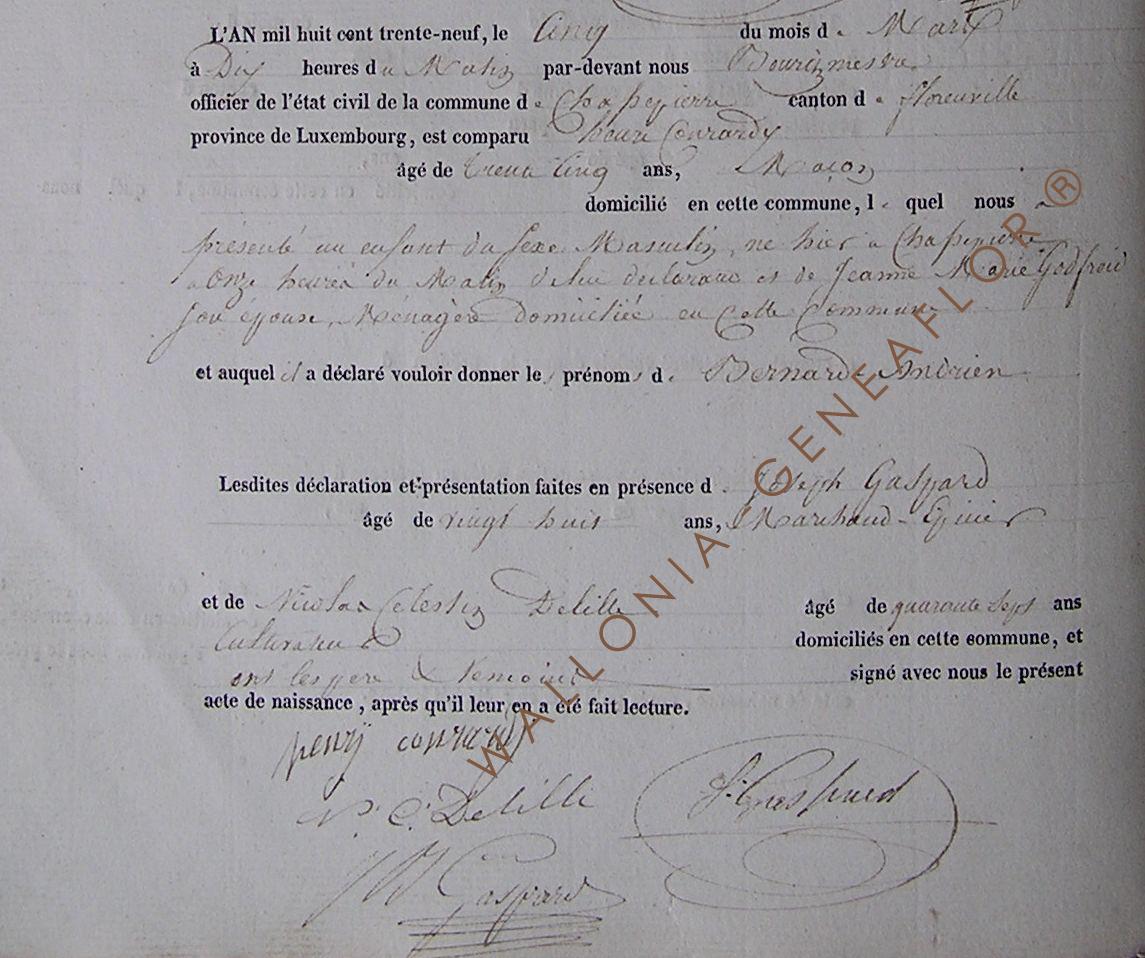 L'AN mil huit cent trente-neuf, le Cinq du mois de Mars
à Dix heures du Matin par-devant nous Bourgmestre
officier de l'état civil de la commune de Chassepierre canton de florenville
province de Luxembourg, est comparu henri Conrardy
âgé de trente Cinq ans, Maçon
domicilié en cette commune, lequel nous a
présenté un enfant du Sexe Masculin, né hier a Chassepierre
a Onze heures du Matin de lui declarant et de Jeanne Marie Godfroid
Son épouse, Ménagère domiciliée en Cette Commune
et auquel il a déclaré vouloir donner les prénoms de Bernard-Andrien
Lesdites déclaration et présentation faites en présence de Joseph Gaspard
âgé de vingt huit ans, Marchand-Epicier
et de Nicolas Celestin Delille âgé de quarante Sept ans
Cultivateur domiciliés en cette commune, et
ont les pere & temoins signé avec nous le présent
acte de naissance, après qu'il leur en a été fait lecture.
henrÿ conrardy
N. C. Delille J. Gaspard
Gaspard
WALLONIA GENEAFLOR ®